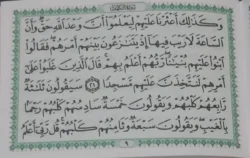 وَكَذَٰلِكَ أَعْثَرْنَا عَلَيْهِمْ لِيَعْلَمُوا أَنَّ وَعْدَ اللَّهِ حَقٌّ وَأَنَّ
السَّاعَةَ لَا رَيْبَ فِيهَا إِذْ يَتَنَٰزَعُونَ بَيْنَهُمْ أَمْرَهُمْ فَقَالُوا
ابْنُوا عَلَيْهِم بُنْيَٰنًا رَّبُّهُمْ أَعْلَمُ بِهِمْ قَالَ الَّذِينَ غَلَبُوا عَلَىٰ
أَمْرِهِمْ لَنَتَّخِذَنَّ عَلَيْهِم مَّسْجِدًا ٢١ سَيَقُولُونَ ثَلَٰثَةٌ
رَّابِعُهُمْ كَلْبُهُمْ وَيَقُولُونَ خَمْسَةٌ سَادِسُهُمْ كَلْبُهُمْ رَجْمًا
بِالْغَيْبِ وَيَقُولُونَ سَبْعَةٌ وَثَامِنُهُمْ كَلْبُهُمْ قُل رَّبِّي أَعْلَمُ
٩